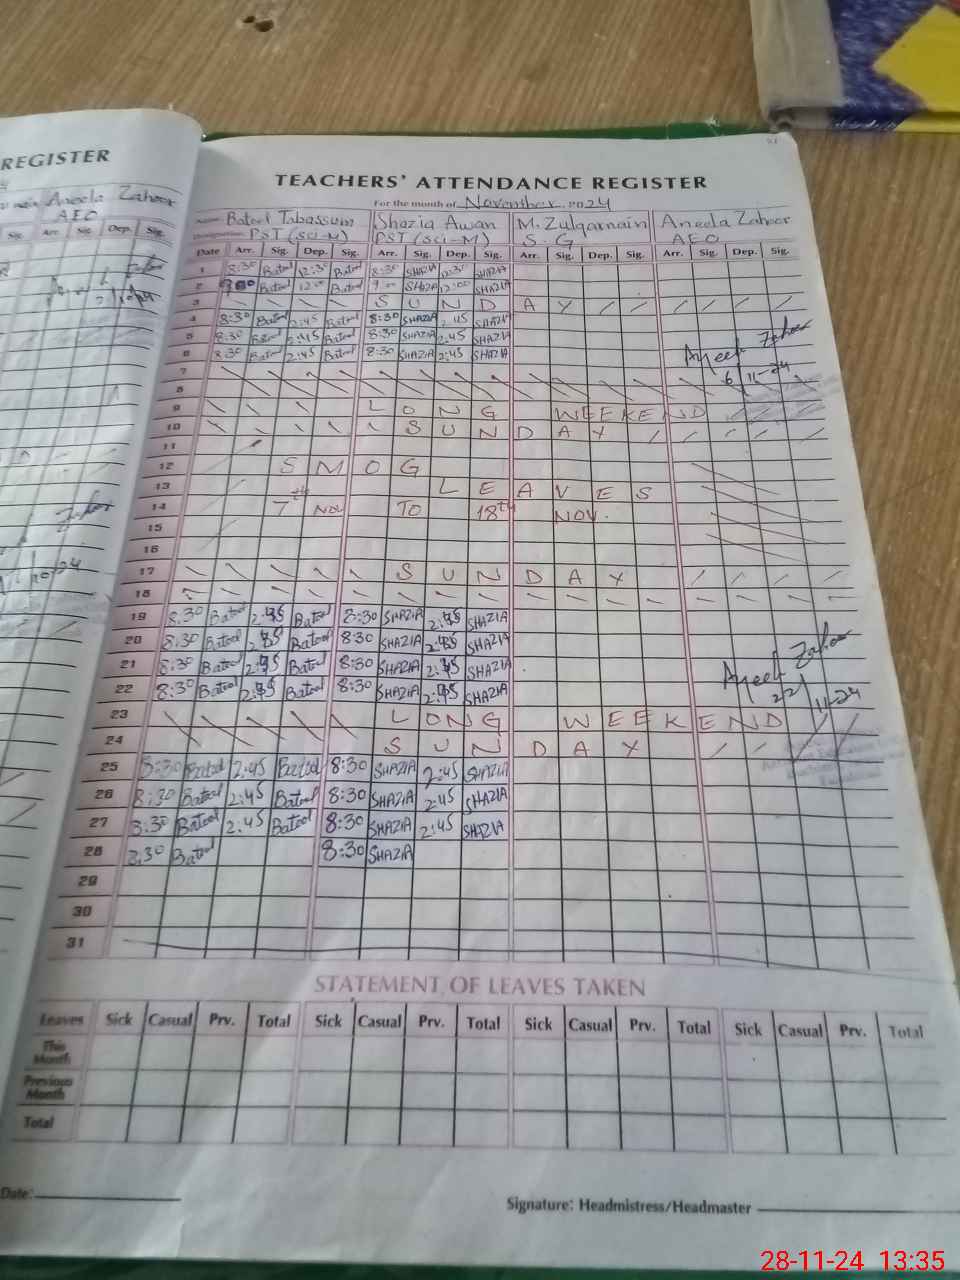 REGISTER
Aneela Zaheer
AEO
Sig. Arr. Sig. Dep. Sig.
TEACHERS' ATTENDANCE REGISTER
For the month of November, 2024
Name: Batool Tabassum Shazia Awan M. Zulqarnain Aneela Zaheer
Designation: PST (Sci-M) PST (Sci-M) S.G AEO
Date Arr. Sig. Dep. Sig. Arr. Sig. Dep. Sig. Arr. Sig. Dep. Sig. Arr. Sig. Dep. Sig.
1 8:30 Batool 12:30 Batool 8:30 SHAZIA 12:30 SHAZIA
2 Batool 12:00 Batool 9:00 SHAZIA 12:00 SHAZIA
3 S U N D A Y
4 8:30 Batool 2:45 Batool 8:30 SHAZIA 2:45 SHAZIA
5 8:30 Batool 2:45 Batool 8:30 SHAZIA 2:45 SHAZIA
6 8:30 Batool 2:45 Batool 8:30 SHAZIA 2:45 SHAZIA
Aneela Zaheer
7 6/11-24
8
9 L O N G W E E K E N D
10 S U N D A Y
11
12 S M O G
13 L E A V E S
14 7th Nov TO 18th NOV.
15
16
17 S U N D A Y
18
19 8:30 Batool 2:45 Batool 8:30 SHAZIA 2:45 SHAZIA
20 8:30 Batool 2:45 Batool 8:30 SHAZIA 2:45 SHAZIA
21 8:30 Batool 2:45 Batool 8:30 SHAZIA 2:45 SHAZIA
Aneela Zaheer
22 8:30 Batool 2:45 Batool 8:30 SHAZIA 2:45 SHAZIA 22/11-24
23 L O N G W E E K E N D
24 S U N D A Y
25 8:30 Batool 2:45 Batool 8:30 SHAZIA 2:45 SHAZIA
26 8:30 Batool 2:45 Batool 8:30 SHAZIA 2:45 SHAZIA
27 8:30 Batool 2:45 Batool 8:30 SHAZIA 2:45 SHAZIA
28 8:30 Batool 8:30 SHAZIA
29
30
31
STATEMENT OF LEAVES TAKEN
Leaves Sick Casual Prv. Total Sick Casual Prv. Total Sick Casual Prv. Total Sick Casual Prv. Total
This Month
Previous Month
Total
Date:
Signature: Headmistress/Headmaster
28-11-24 13:35